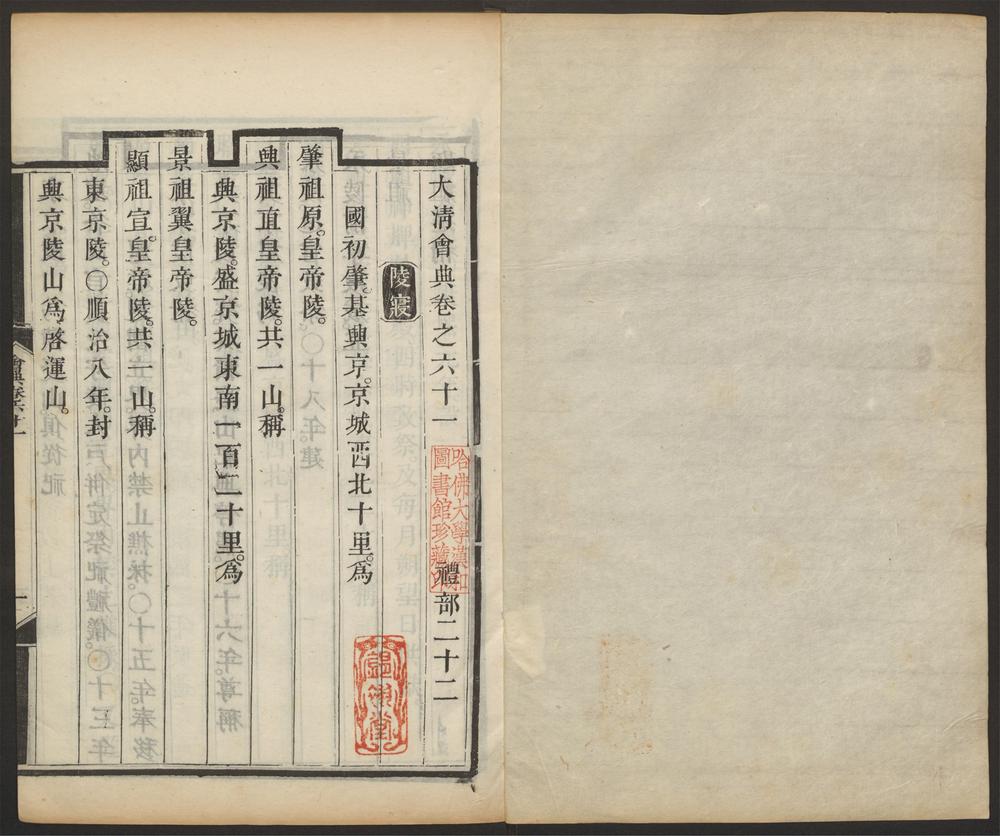 大淸會典卷之六十一
禮部二十二
哈佛大學漢和
圖書館珍藏印
陵寢
國初肇基興京京城西北十里爲
肇祖原皇帝陵
興祖直皇帝陵共一山稱
興京陵盛京城東南一百二十里爲
景祖翼皇帝陵
顯祖宣皇帝陵共一山稱
東京陵○順治八年封
興京陵山爲啓運山
會典卷六十一